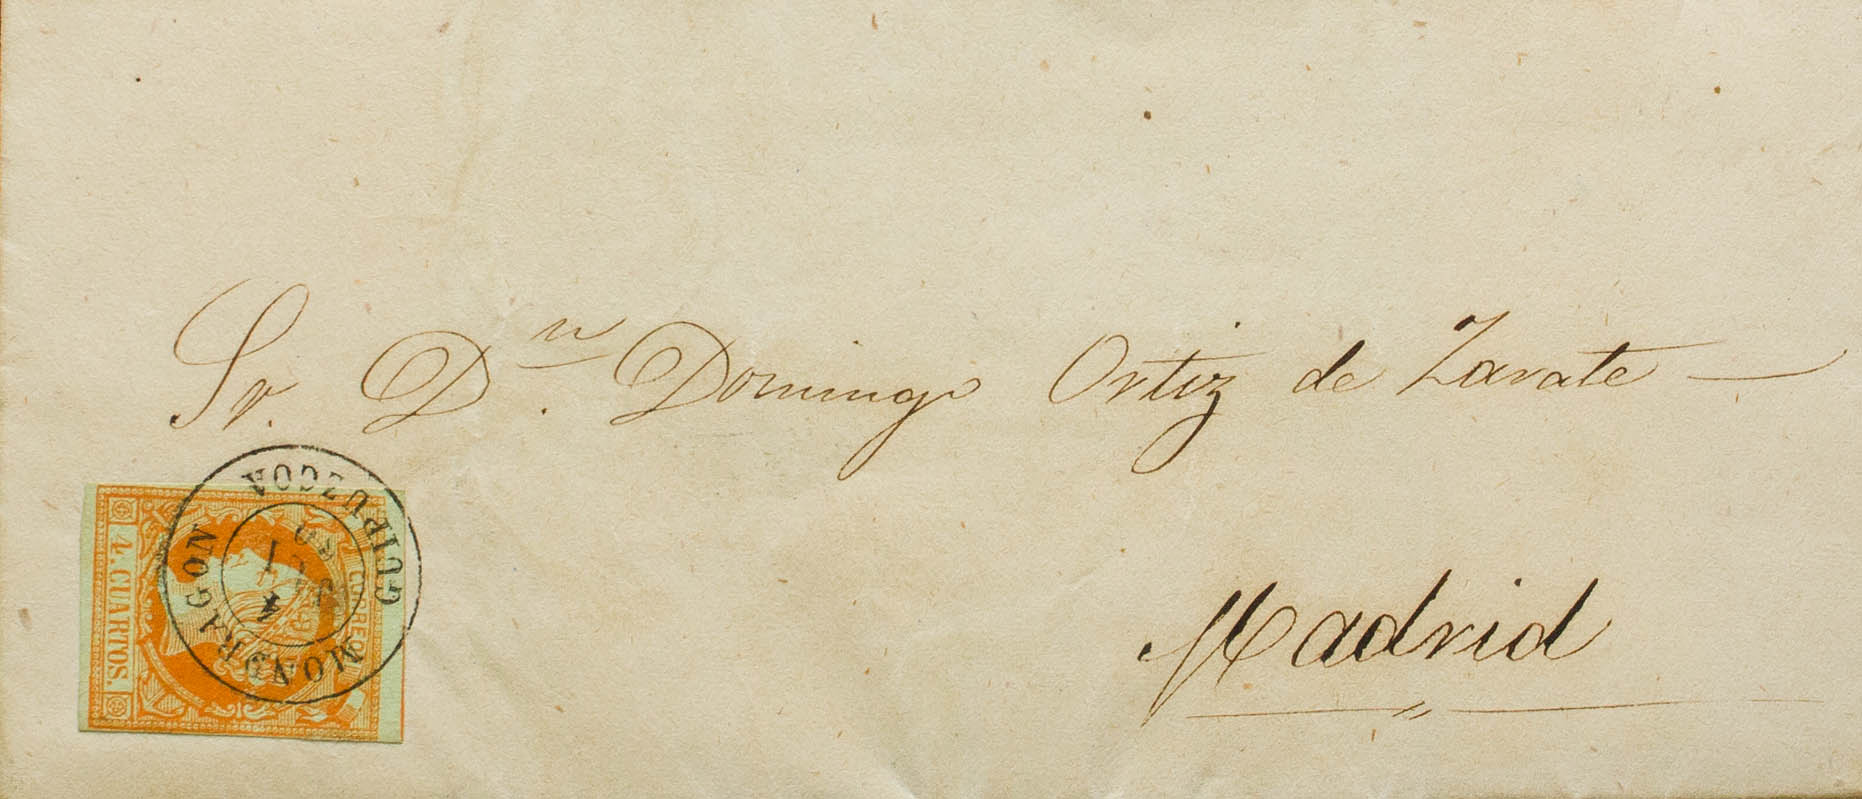 Sr. Dn. Domingo Ortiz de Zarate
Madrid
GUIPUZCOA
MONDRAGON
CORREOS
4. CUARTOS.